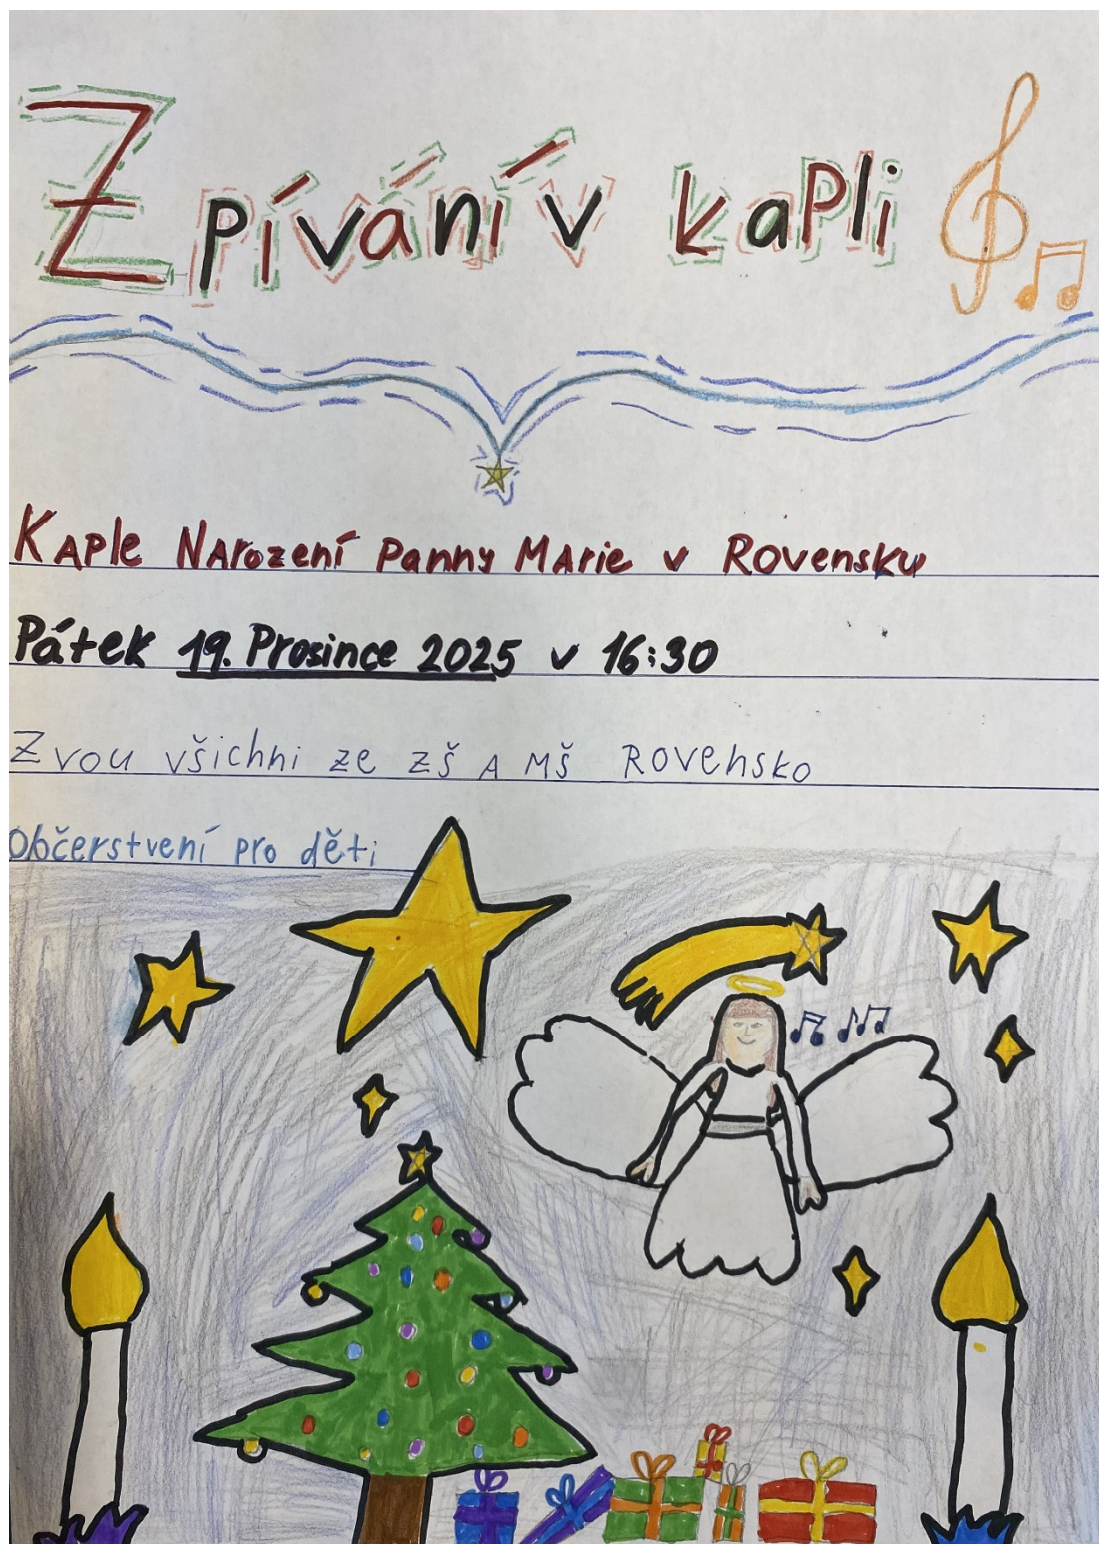 Zpívání v kaPli
KAPle NArození Panny MArie v Rovensku
Pátek 19. Prosince 2025 v 16:30
Zvou všichni ze ZŠ A MŠ Rovensko
Občerstvení pro děti